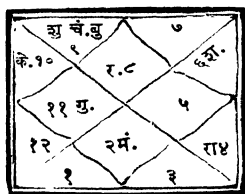 शु चं.बु ७
९
के.१० र.८ ६श.
११ गु. ५
१२ २मं. रा४
१ ३